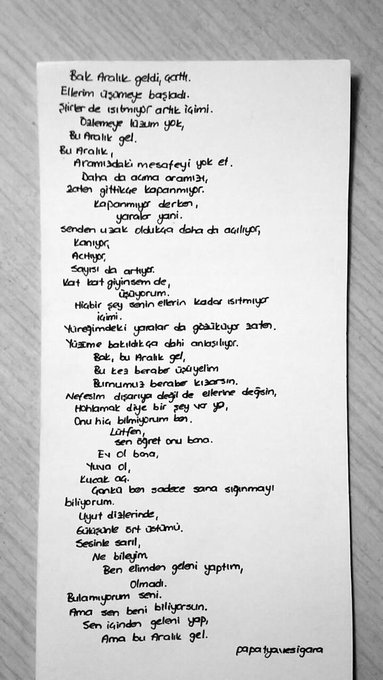 Bak Aralık geldi, çattı.
Ellerim üşümeye başladı.
Şiirler de ısıtmıyor artık içimi.
Özlemeye lüzum yok,
Bu Aralık gel.
Bu Aralık,
Aramızdaki mesafeyi yok et.
Daha da açma aramızı,
zaten gittikçe kapanmıyor.
Kapanmıyor derken,
yaralar yani.
senden uzak oldukça daha da açılıyor,
Kanıyor,
Acıtıyor,
Sayısı da artıyor.
Kat kat giyinsem de,
üşüyorum.
Hiçbir şey senin ellerin kadar ısıtmıyor
içimi.
Yüreğimdeki yaralar da gözüküyor zaten.
Yüzüme bakıldıkça dahi anlaşılıyor.
Bak, bu Aralık gel,
Bu kez beraber üşüyelim
Burnumuz beraber kızarsın.
Nefesim dışarıya değil de ellerine değsin,
Hohlamak diye bir şey var ya,
Onu hiç bilmiyorum ben.
Lütfen,
sen öğret onu bana.
Ev ol bana,
Yuva ol,
Kucak aç.
Çünkü ben sadece sana sığınmayı
biliyorum.
Uyut dizlerinde,
Gülüşünle ört üstümü.
Sesinle sarıl,
Ne bileyim.
Ben elimden geleni yaptım,
Olmadı.
Bulamıyorum seni.
Ama sen beni biliyorsun.
Sen içinden geleni yap,
Ama bu Aralık gel.
papatyavesigara